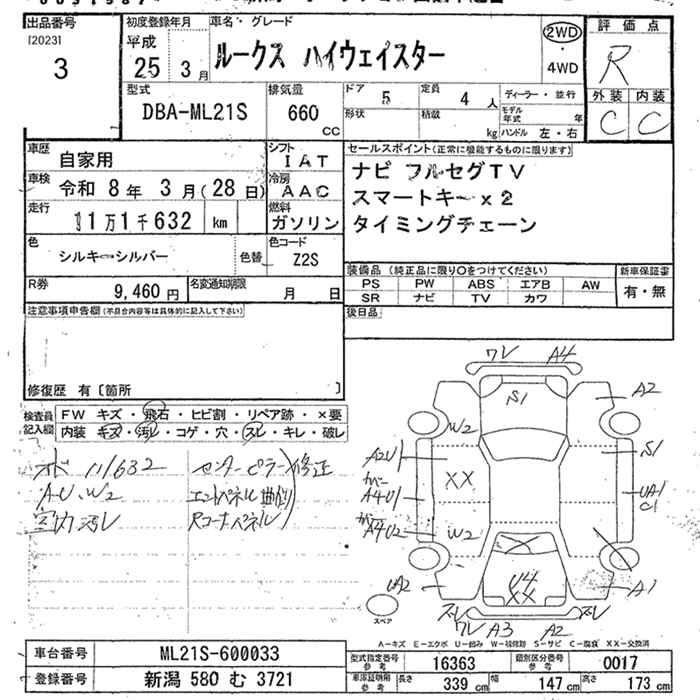 出品番号
[2023]
3
初度登録年月
平成
25年3月
車名・グレード
ルークス ハイウェイスター
2WD
・
4WD
評価点
R
外装 内装
C C
型式
DBA-ML21S
排気量
660
CC
ドア 5
定員 4人
形状
積載 kg
ディーラー・並行
モデル年式 年
ハンドル 左・右
車歴
自家用
シフト
IAT
車検
令和 8年 3月(28日)
冷房
AAC
走行
11万1千632 km
燃料
ガソリン
色
シルキーシルバー
色替
色コード
Z2S
R券
9,460円
名変通知期限
月 日
セールスポイント(正常に機能するものに限ります)
ナビ フルセグTV
スマートキーx2
タイミングチェーン
装備品(純正品に限り○をつけてください)
新車保証書
PS PW ABS エアB AW
SR ナビ TV カワ
有・無
後日品
注意事項申告欄(不具合内容等は具体的に記入して下さい)
修復歴 有〔箇所 〕
検査員記入欄
FW キズ・飛石・ヒビ割・リペア跡・×要
内装 キズ・汚レ・コゲ・穴・スレ・キレ・破レ
オド 111632
A-U、W2
室内汚レ
センターピラー 修正
エンドパネル 曲り
Rコーナーパネル
ワレ A4
S1
A2
W2
A2U
S1
XX
カバー
A4U
UA1
C1
カバー
A4U2
W2
UA2
U4
XX
A1
スレ スレ
ワレ A3 A2
スペア
A-キズ E-エクボ U-凹み W-補修跡 S-サビ C-腐食 XX-交換済
車台番号 ML21S-600033
登録番号 新潟 580 む 3721
型式指定番号 参考 16363
類別区分番号 参考 0017
車検証期間用 参考 長さ 339 cm 幅 147 cm 高さ 173 cm